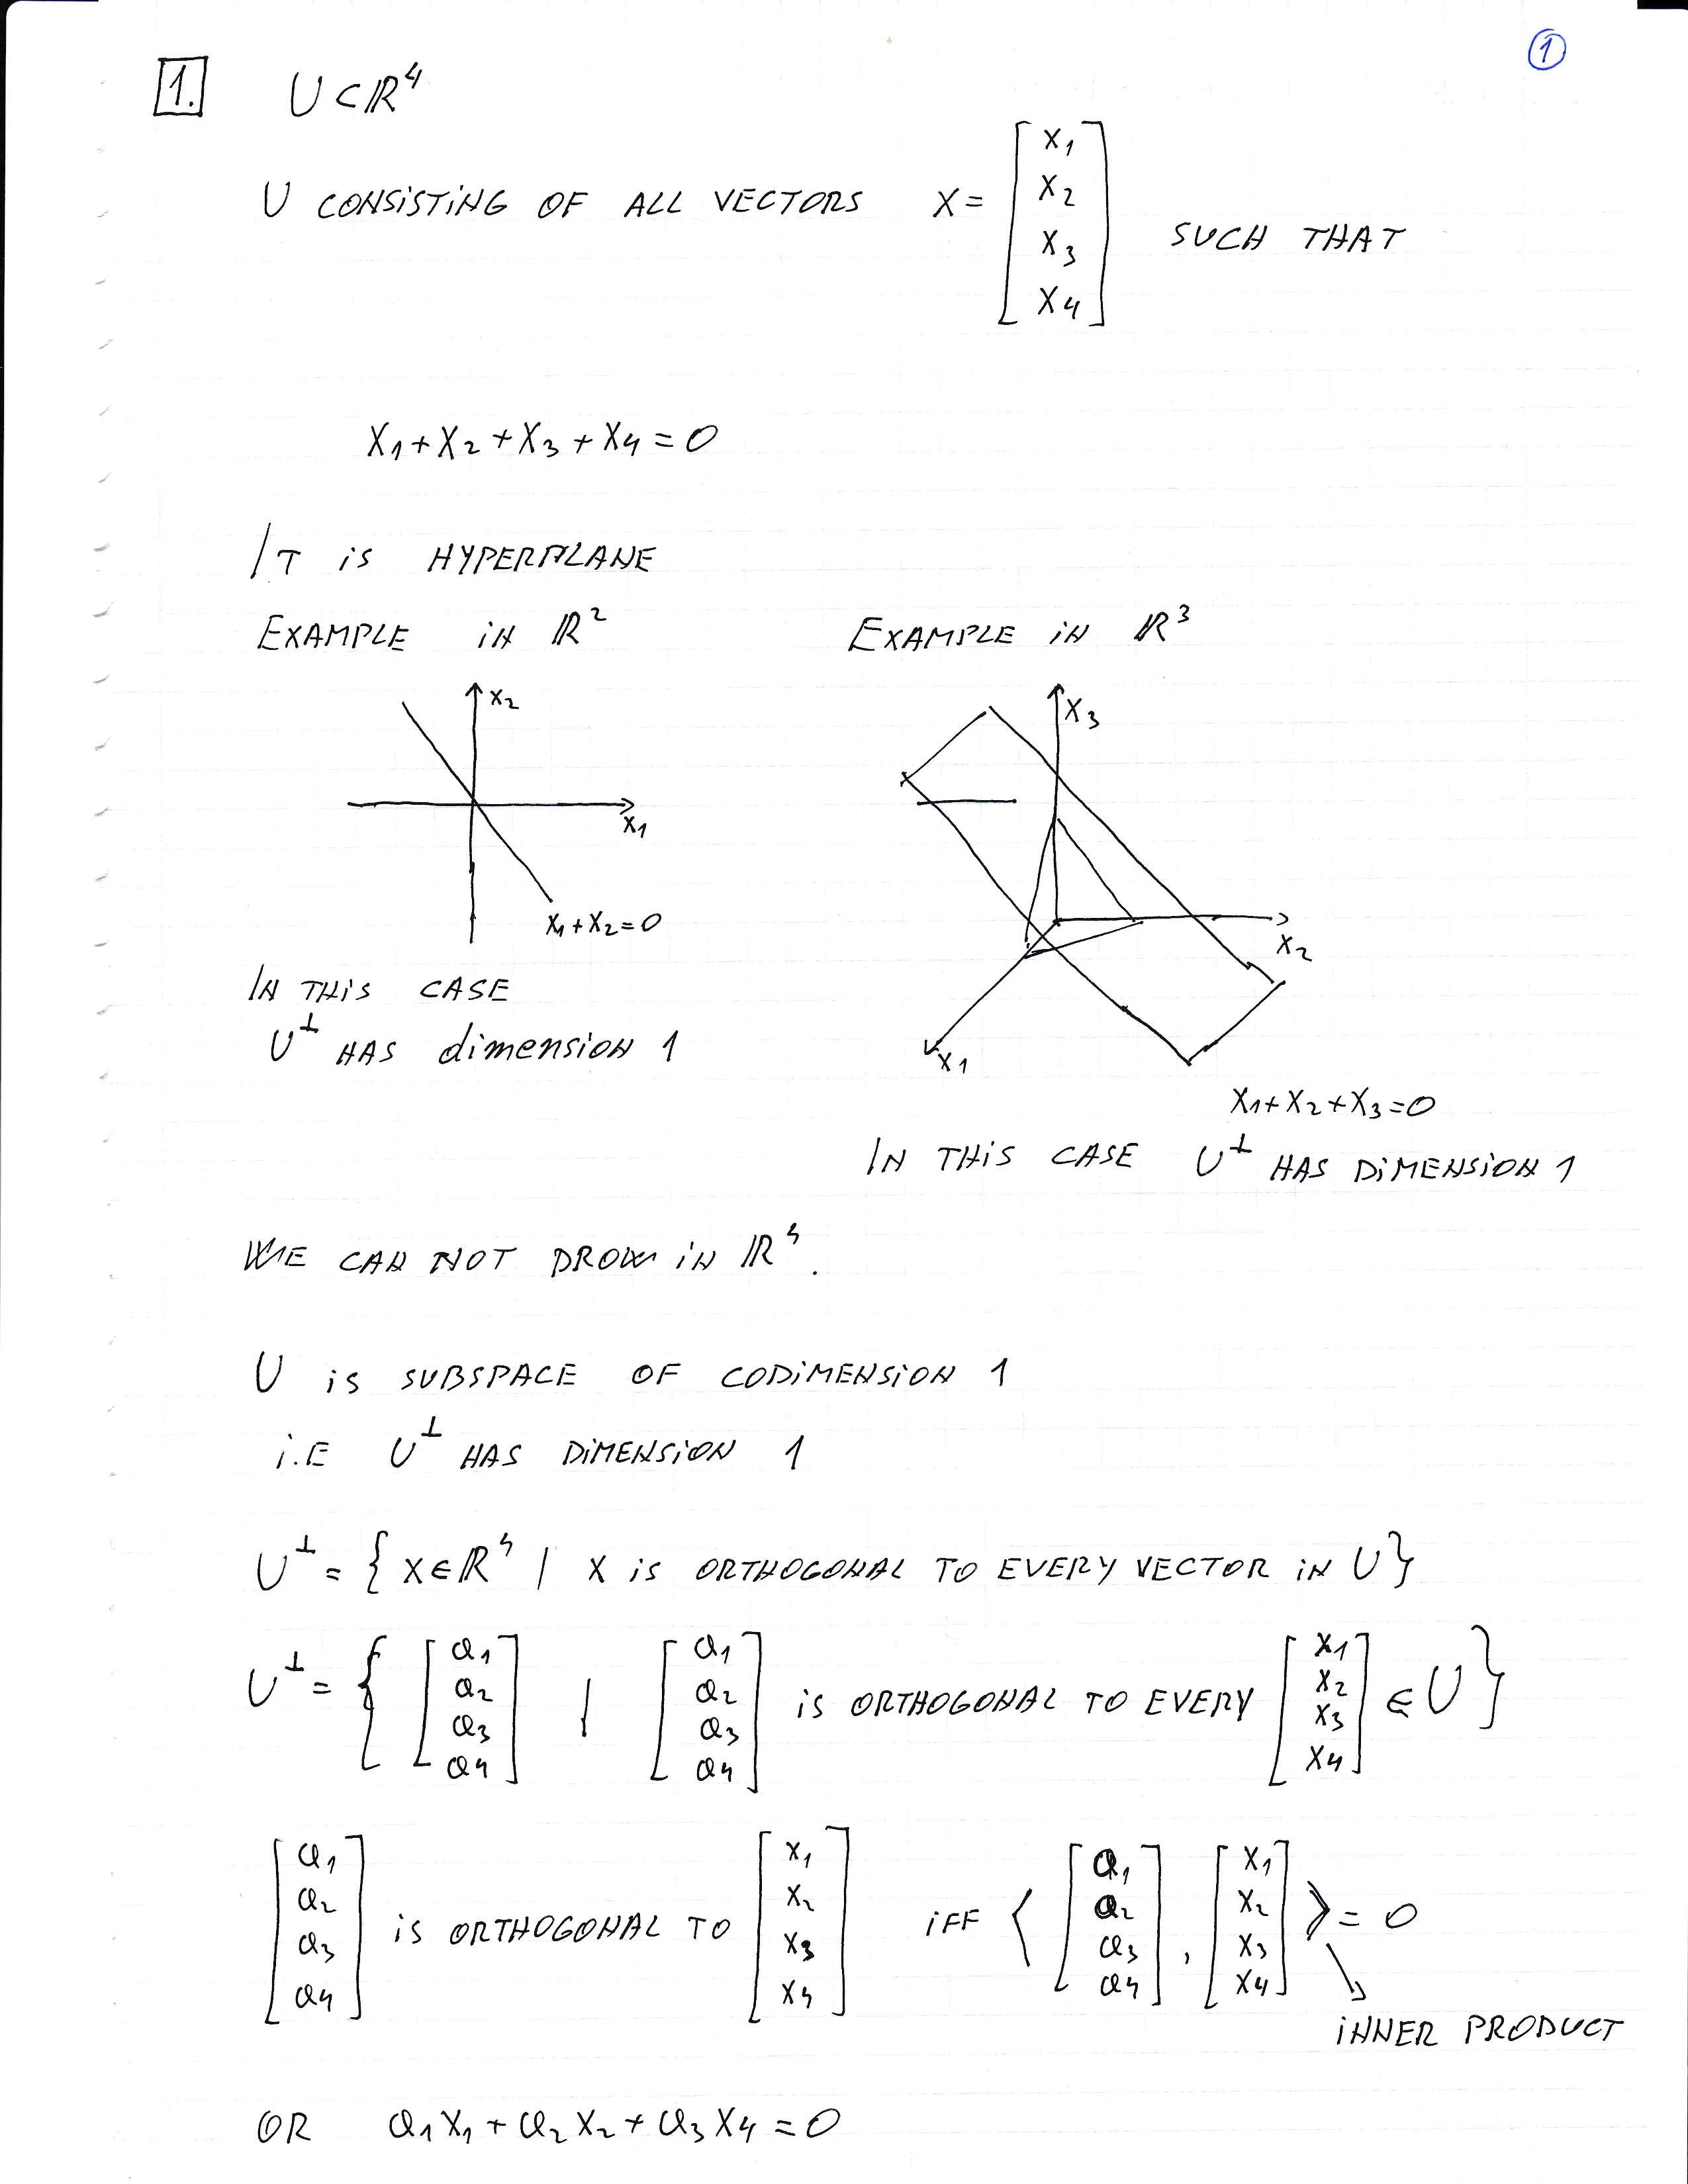 ①
1. U⊂ℝ⁴
U CONSISTING OF ALL VECTORS X = [x₁ x₂ x₃ x₄] SUCH THAT
x₁+x₂+x₃+x₄=0
IT is HYPERPLANE
EXAMPLE iN ℝ²
x₂
x₁
x₁+x₂=0
IN THiS CASE
U^⊥ HAS dimensioN 1
EXAMPLE iN ℝ³
x₃
x₂
x₁
x₁+x₂+x₃=0
IN THiS CASE U^⊥ HAS DiMENSiON 1
WE CAN NOT DROW iN ℝ⁴.
U is SUBSPACE OF CODiMENSiON 1
i.E U^⊥ HAS DiMENSiON 1
U^⊥ = { X∈ℝ⁴ | X is ORTHOGONAL TO EVERY VECTOR iN U }
U^⊥ = { [a₁ a₂ a₃ a₄] | [a₁ a₂ a₃ a₄] is ORTHOGONAL TO EVERY [x₁ x₂ x₃ x₄] ∈ U }
[a₁ a₂ a₃ a₄] is ORTHOGONAL TO [x₁ x₂ x₃ x₄] iFF ⟨[a₁ a₂ a₃ a₄], [x₁ x₂ x₃ x₄]⟩ = 0
iNNER PRODUCT
OR a₁x₁+a₂x₂+a₃x₄=0